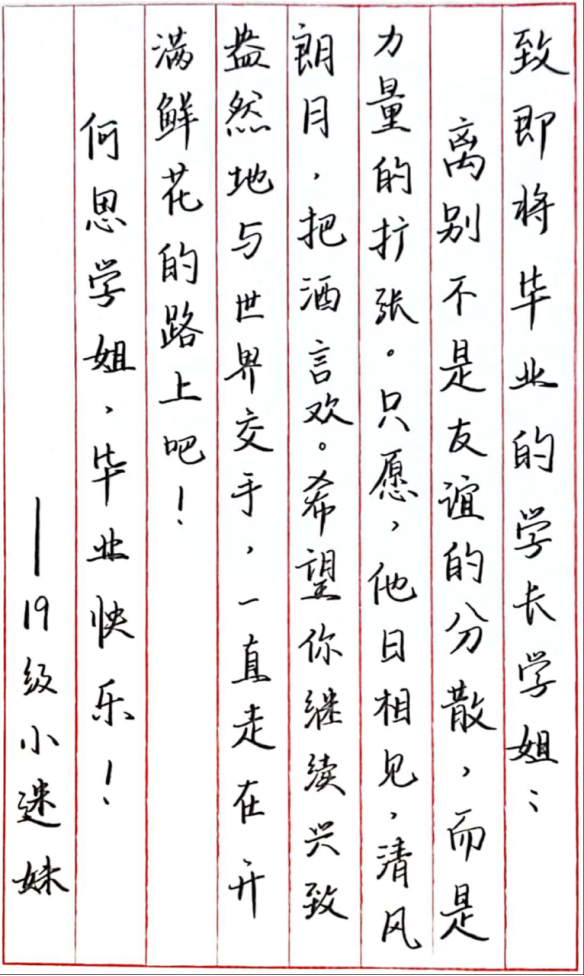 致即将毕业的学长学姐：
离别不是友谊的分散，而是
力量的扩张。只愿，他日相见，清风
朗月，把酒言欢。希望你继续兴致
盎然地与世界交手，一直走在开
满鲜花的路上吧！
何思学姐，毕业快乐！
——19级小迷妹